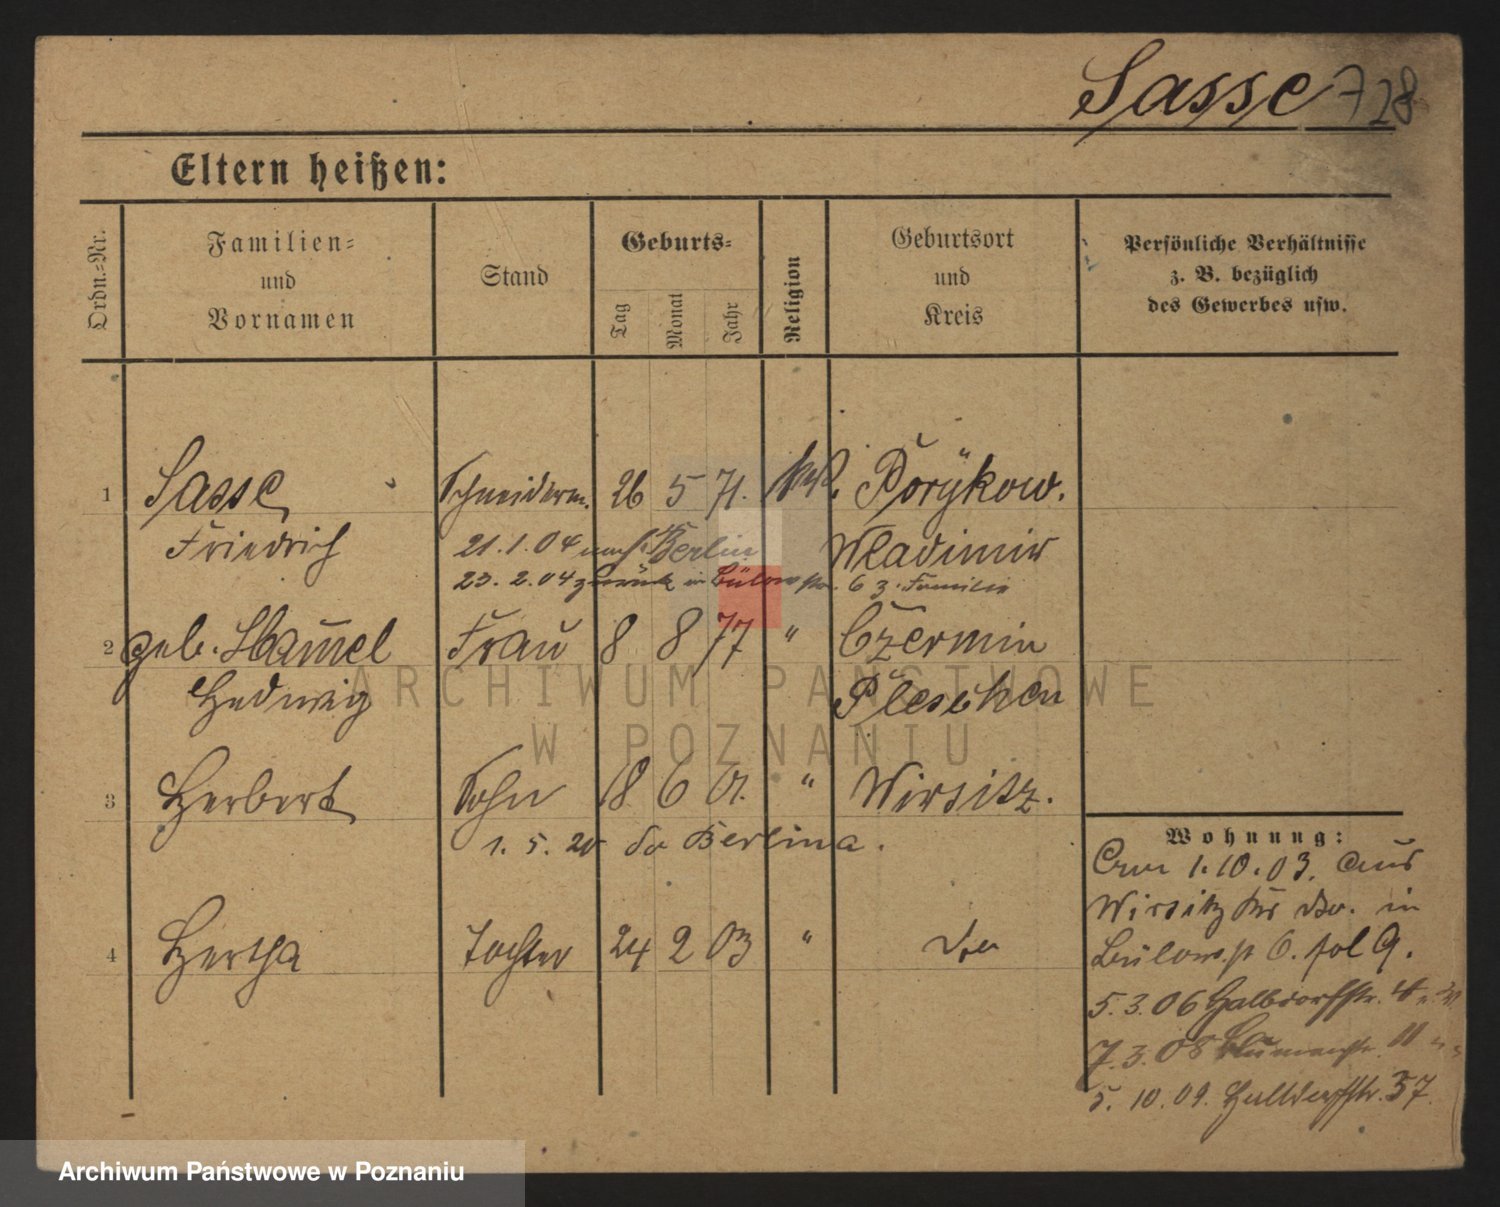 Sasse 728
Eltern heißen:
Ordn.-Nr.
Familien-
und
Vornamen
Stand
Geburts-
Tag
Monat
Jahr
Religion
Geburtsort
und
Kreis
Persönliche Verhältnisse
z. B. bezüglich
des Gewerbes usw.
1 Sasse Schneiderm. 26 5 71. Porÿkow.
Friedrich Wladimir
21.1.04 nach Berlin
23.2.04 zurück in Bülowstr. 6 z. Familie
2 geb. Hamel Frau 8 8 77 " Czermin
Hedwig Pleschen
3 Herbert Sohn 18 6 01. " Wirsitz.
1. 5. 20 Berlin a.
4 Hertha Tochter 24 2 03 " do
Wohnung:
1.10.03. aus
Wirsitz in
Bülowstr 6. fol 9.
5.3.06 Halbdorfstr. 4
7.3.08 Blumenstr. 11
5.10.09. Halbdorfstr. 37.
ARCHIWUM PAŃSTWOWE
W POZNANIU
Archiwum Państwowe w Poznaniu